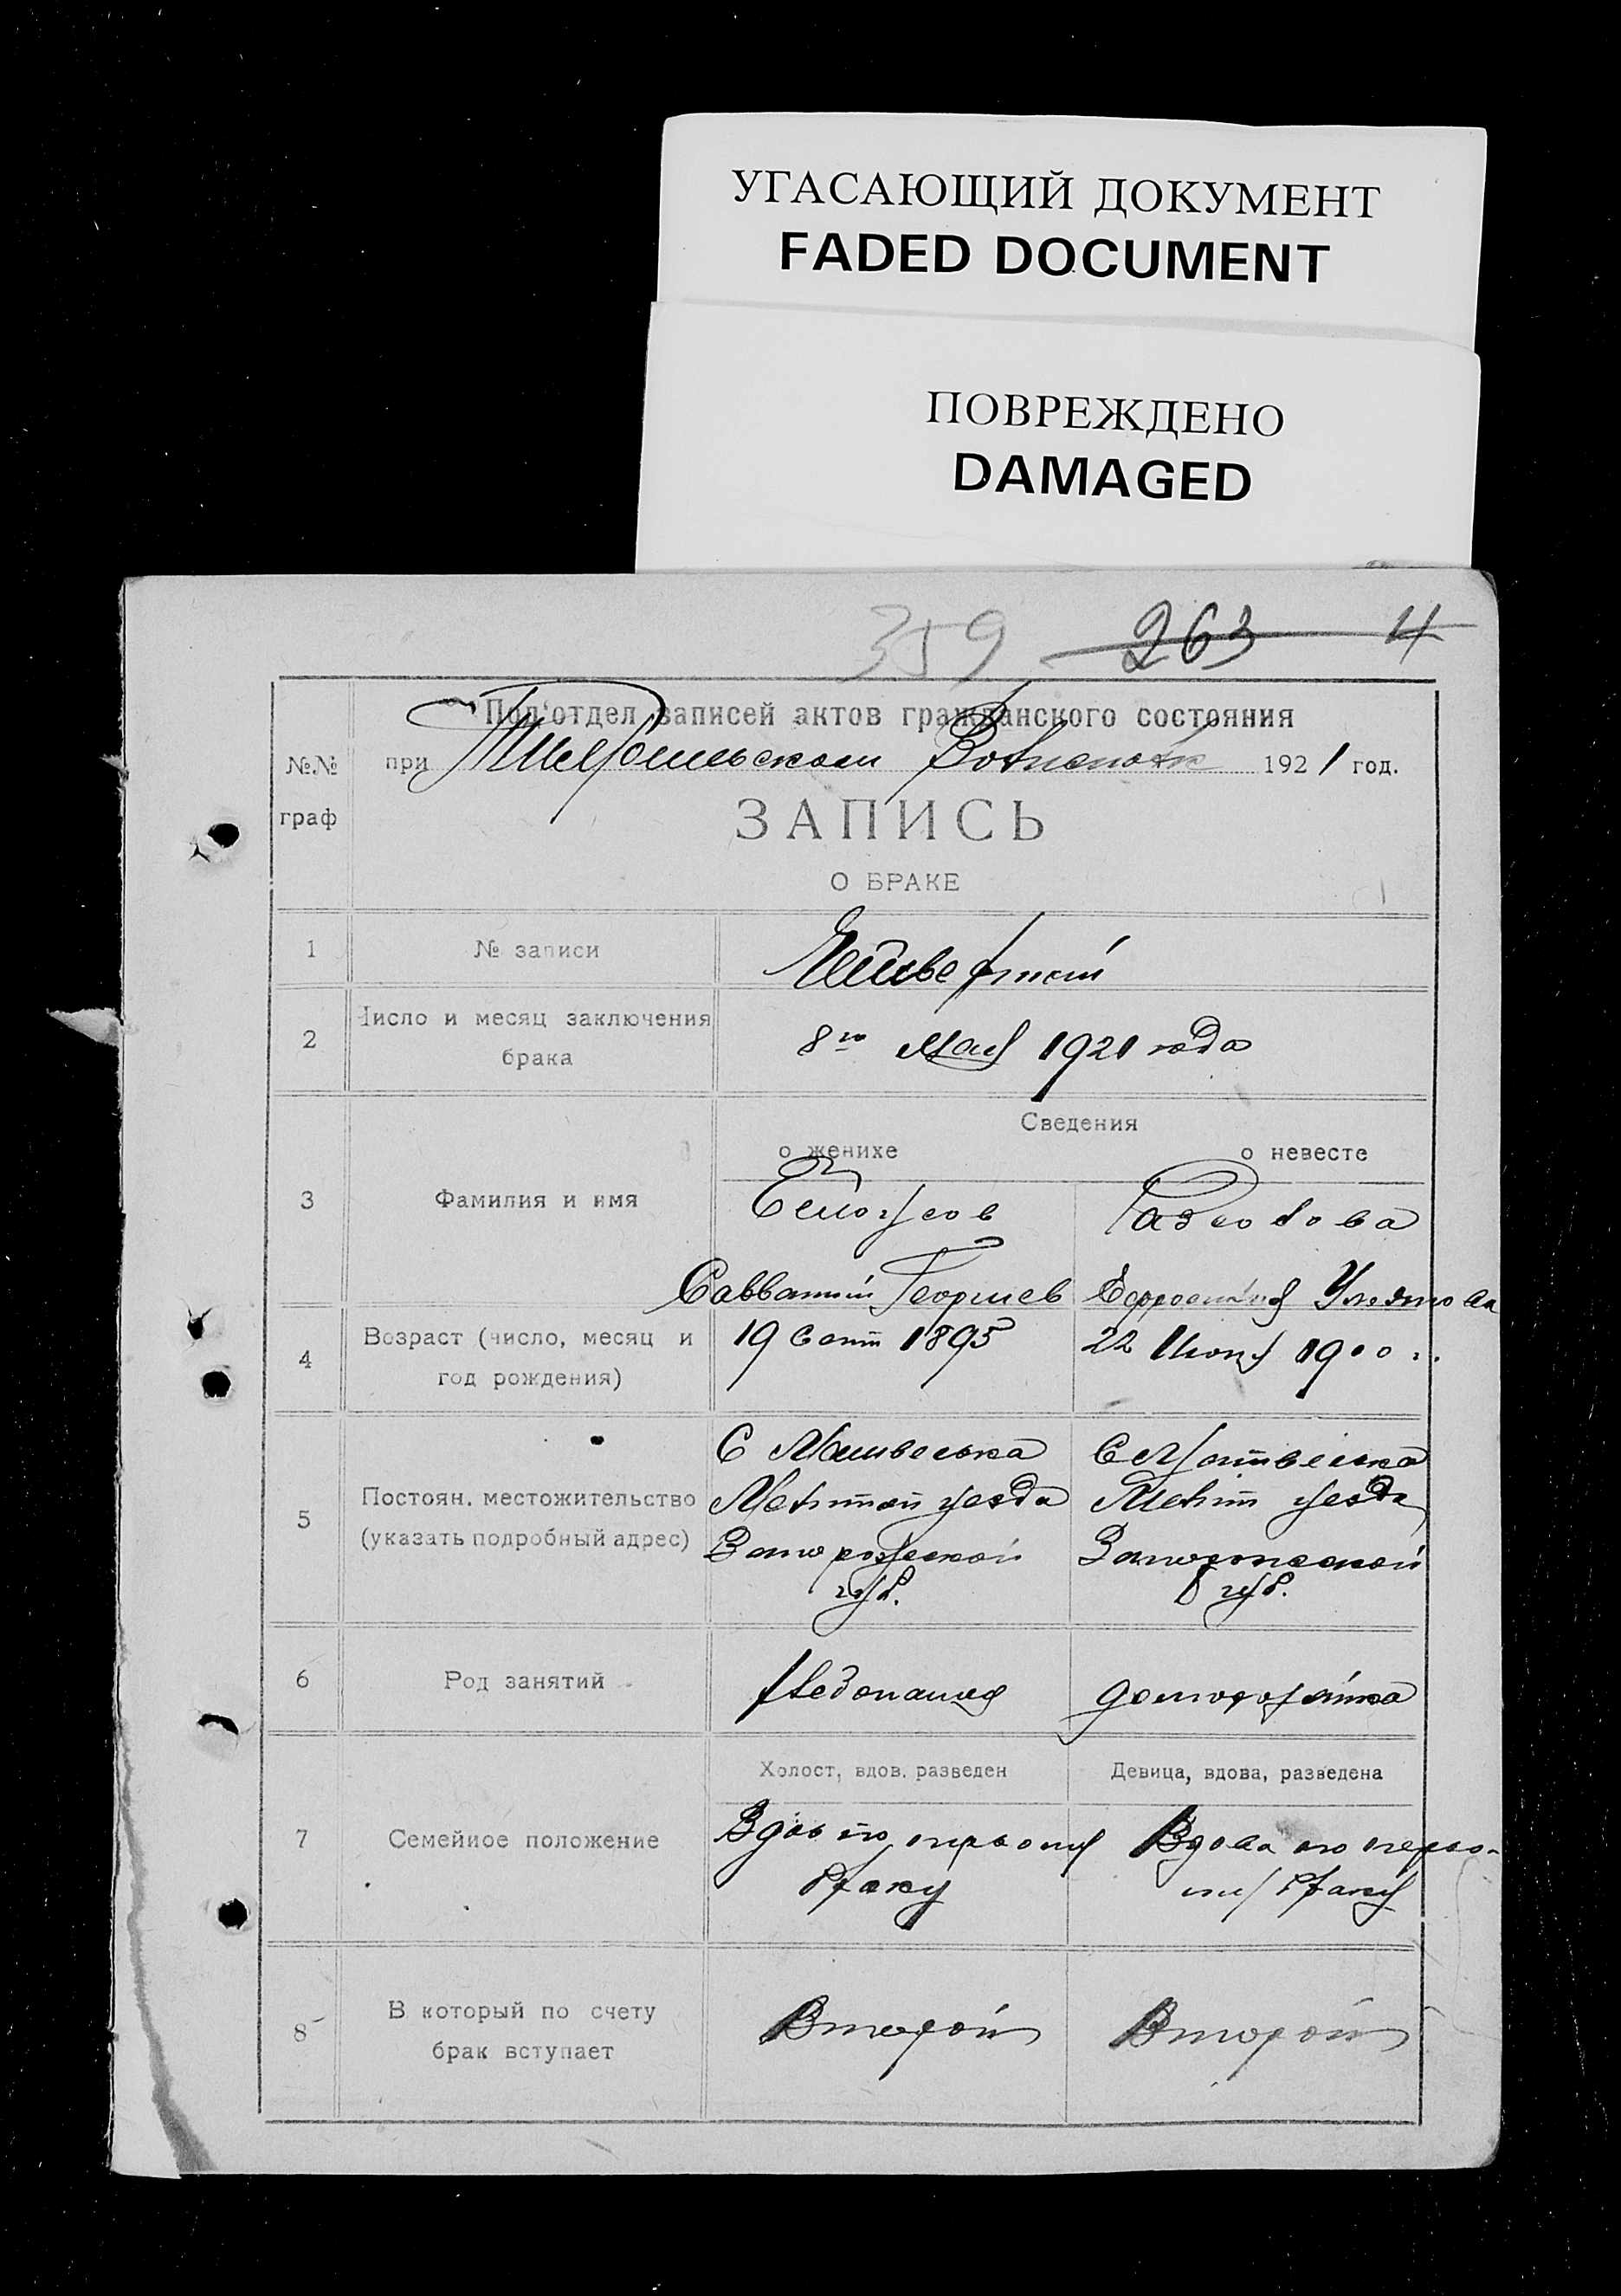 УГАСАЮЩИЙ ДОКУМЕНТ
FADED DOCUMENT
ПОВРЕЖДЕНО
DAMAGED
359 263 4
Под'отдел записей актов гражданского состояния
№№ при 1921 год.
граф
ЗАПИСЬ
О БРАКЕ
1 № записи Четвертый
2 Число и месяц заключения
брака
8го Мая 1921 года
Сведения
о женихе о невесте
3 Фамилия и имя
Савватий Георгиев
4 Возраст (число, месяц и
год рождения)
19 Сент 1895 22 1900 г.
5 Постоян. местожительство
(указать подробный адрес)
С Матвеевка С Матвеевка
уезда уезда
Запорожской Запорожской
губ. губ.
6 Род занятий
Хлебопашец
7 Семейное положение
Холост, вдов. разведен Девица, вдова, разведена
Вдов по первому Вдова по перво-
браку му браку
8 В который по счету
брак вступает
Второй Второй